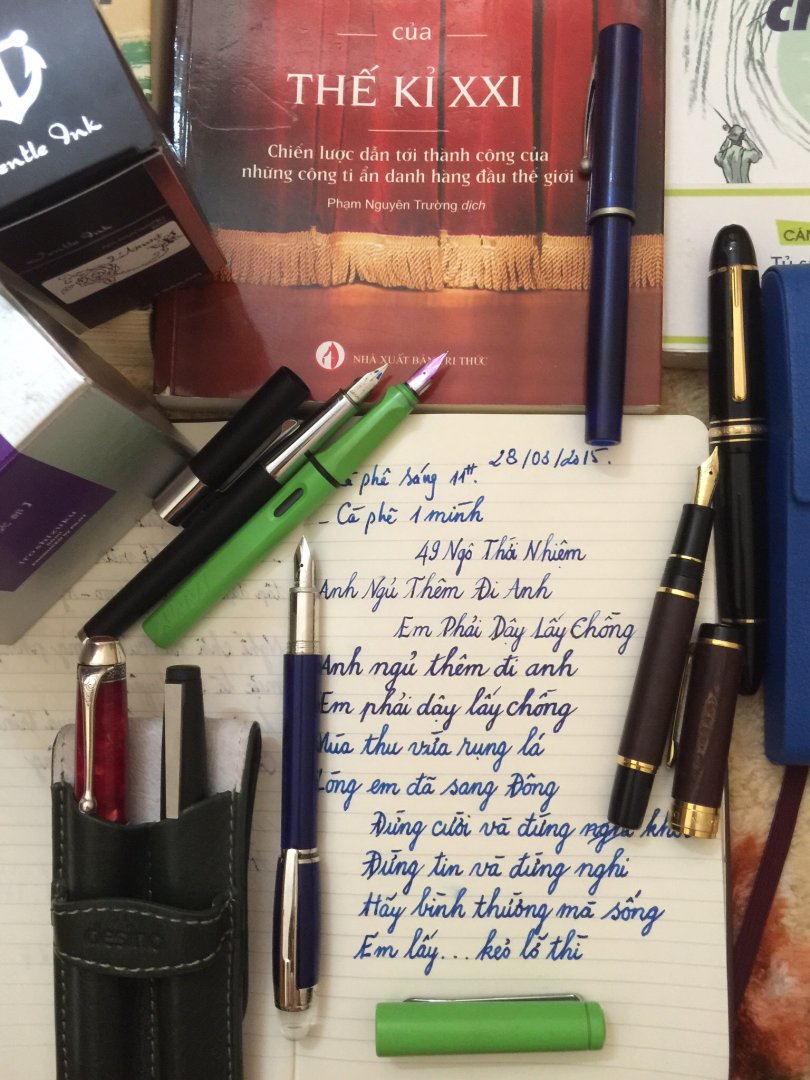 của
THẾ KỈ XXI
Chiến lược dẫn tới thành công của
những công ti ẩn danh hàng đầu thế giới
Phạm Nguyên Trường dịch
NHÀ XUẤT BẢN TRI THỨC
Ink
iroshizuku
28/03/2015.
Cà phê sáng 11tt.
- Cà phê 1 mình
49 Ngô Thời Nhiệm
Anh Ngủ Thêm Đi Anh
Em Phải Dậy Lấy Chồng
Anh ngủ thêm đi anh
Em phải dây lấy chồng
Mùa thu vừa rụng lá
Lòng em đã sang Đông
Đừng cười và đừng
Đừng tin và đừng nghi
Hãy bình thường mà sống
Em lấy... kẻo lỡ thì